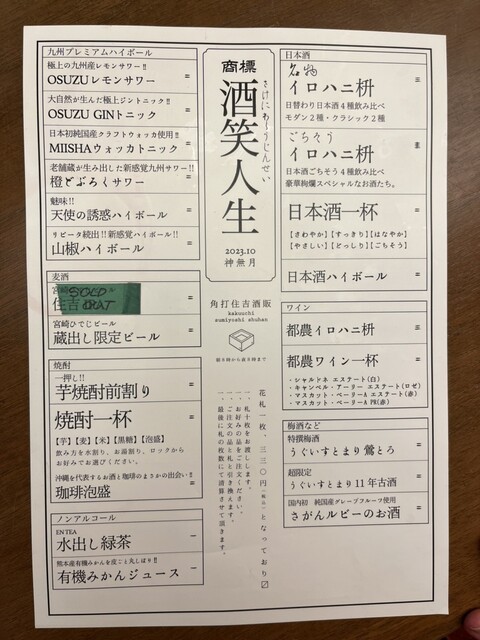 九州プレミアムハイボール
極上の九州産レモンサワー!!
OSUZUレモンサワー 二
大自然が生んだ極上ジントニック!!
OSUZU GINトニック 二
日本初純国産クラフトウォッカ使用!!
MIISHAウォッカトニック 二
老舗蔵が生み出した新感覚九州サワー!!
橙どぶろくサワー 二
魅味!!
天使の誘惑ハイボール 二
リピータ続出!!新感覚ハイボール!!
山椒ハイボール 二
麦酒
SOLD
住吉 二
宮崎ひでじビール
蔵出し限定ビール 二
焼酎
一押し!!
芋焼酎前割り 二
焼酎一杯 二
【芋】【麦】【米】【黒糖】【泡盛】
飲み方を水割り、お湯割り、ロックから
お好みでお選びください。
沖縄を代表するお酒と珈琲のまさかの出会い!!
珈琲泡盛 二
ノンアルコール
EN TEA
水出し緑茶 一
熊本産有機みかんを皮ごと丸しぼり!!
有機みかんジュース 二
商標
酒笑人生
さけにわらうじんせい
2023.10
神無月
角打住吉酒販
kakuuchi
sumiyoshi shuhan
花札一枚、三三〇円(税込)となっており〼
一、札十枚をお渡しします。
一、お好みの品をご注文ください。
一、ご注文の品と札と引き換えます。
一、最後に札の枚数にて清算させて頂きます。
日本酒
名物
イロハニ枡 三
日替わり日本酒4種飲み比べ
モダン2種・クラシック2種
ごちそう
イロハニ枡
日本酒ごちそう4種飲み比べ
豪華絢爛スペシャルなお酒たち。
日本酒一杯 二
【さわやか】【すっきり】【はなやか】
【やさしい】【どっしり】【ごちそう】
日本酒ハイボール 二
ワイン
都農イロハニ枡
都農ワイン一杯 二
・シャルドネ エステート(白)
・キャンベル・アーリー エステート(ロゼ)
・マスカット・ベーリーA エステート(赤)
・マスカット・ベーリーA PR(赤)
梅酒など
特撰梅酒
うぐいすとまり鶯とろ 二
超限定
うぐいすとまり11年古酒 二
国内初 純国産グレープフルーツ使用
さがんルビーのお酒 二